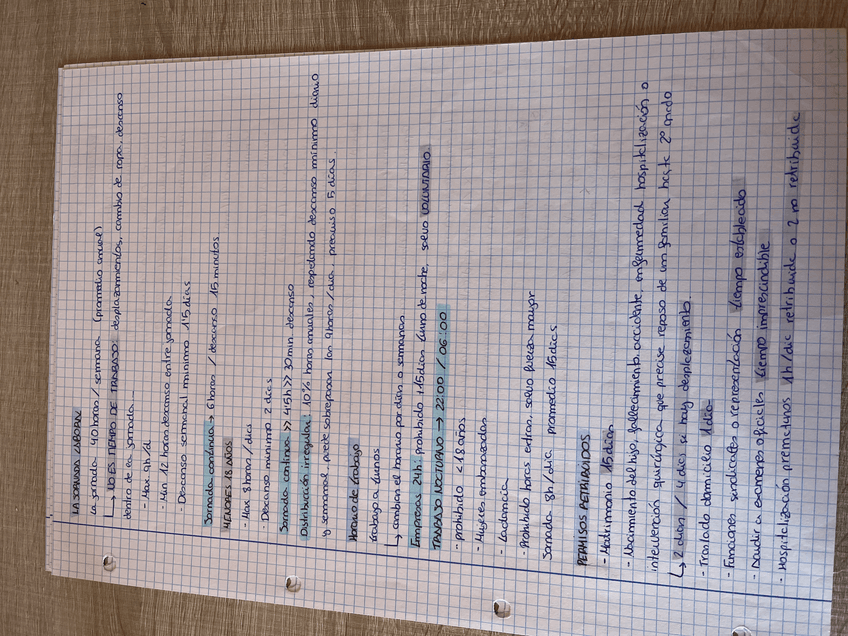 LA JORNADA LABORAL
La jornada 40 horas / semana (promedio anual)
↳ NO ES TIEMPO DE TRABAJO: desplazamientos, cambio de ropa, descanso
dentro de la jornada.
- Max 9h/d
- Min 12 horas descanso entre jornada
- Descanso semanal minimo 1'5 dias
Jornada continua → 6 horas / descanso 15 minutos
MENORES 18 AÑOS
- Max 8 horas / dias
- Descanso minimo 2 dias
Jornada continua >> 4'5h >> 30 min descanso
Distribución irregular: 10% horas anuales, respetando descanso minimo diario
y semanal, puede sobrepasar las 9 horas/dia, preaviso 5 dias.
Horario de trabajo
trabajo a turnos
↳ cambian el horario por dias o semanas.
Empresas 24h: prohibido +15 dias turno de noche, salvo VOLUNTARIO.
TRABAJO NOCTURNO → 22:00 / 06:00
- prohibido < 18 años
- Mujeres embarazadas
- Lactancia
- Prohibido horas extras, salvo fuerza mayor
Jornada 8h/dia promedio 15 dias.
PERMISOS RETRIBUIDOS
- Matrimonio 15 dias
- Nacimiento del hijo, fallecimiento, accidente, enfermedad, hospitalización o
intervención quirúrgica que precise reposo de un familiar hasta 2º grado
↳ 2 dias / 4 dias si hay desplazamiento.
- Traslado domicilio 1 dia
- Funciones sindicales o representación tiempo establecido
- Acudir a examenes oficiales tiempo imprescindible
- Hospitalización prematuros 1h/dia retribuida o 2 no retribuida